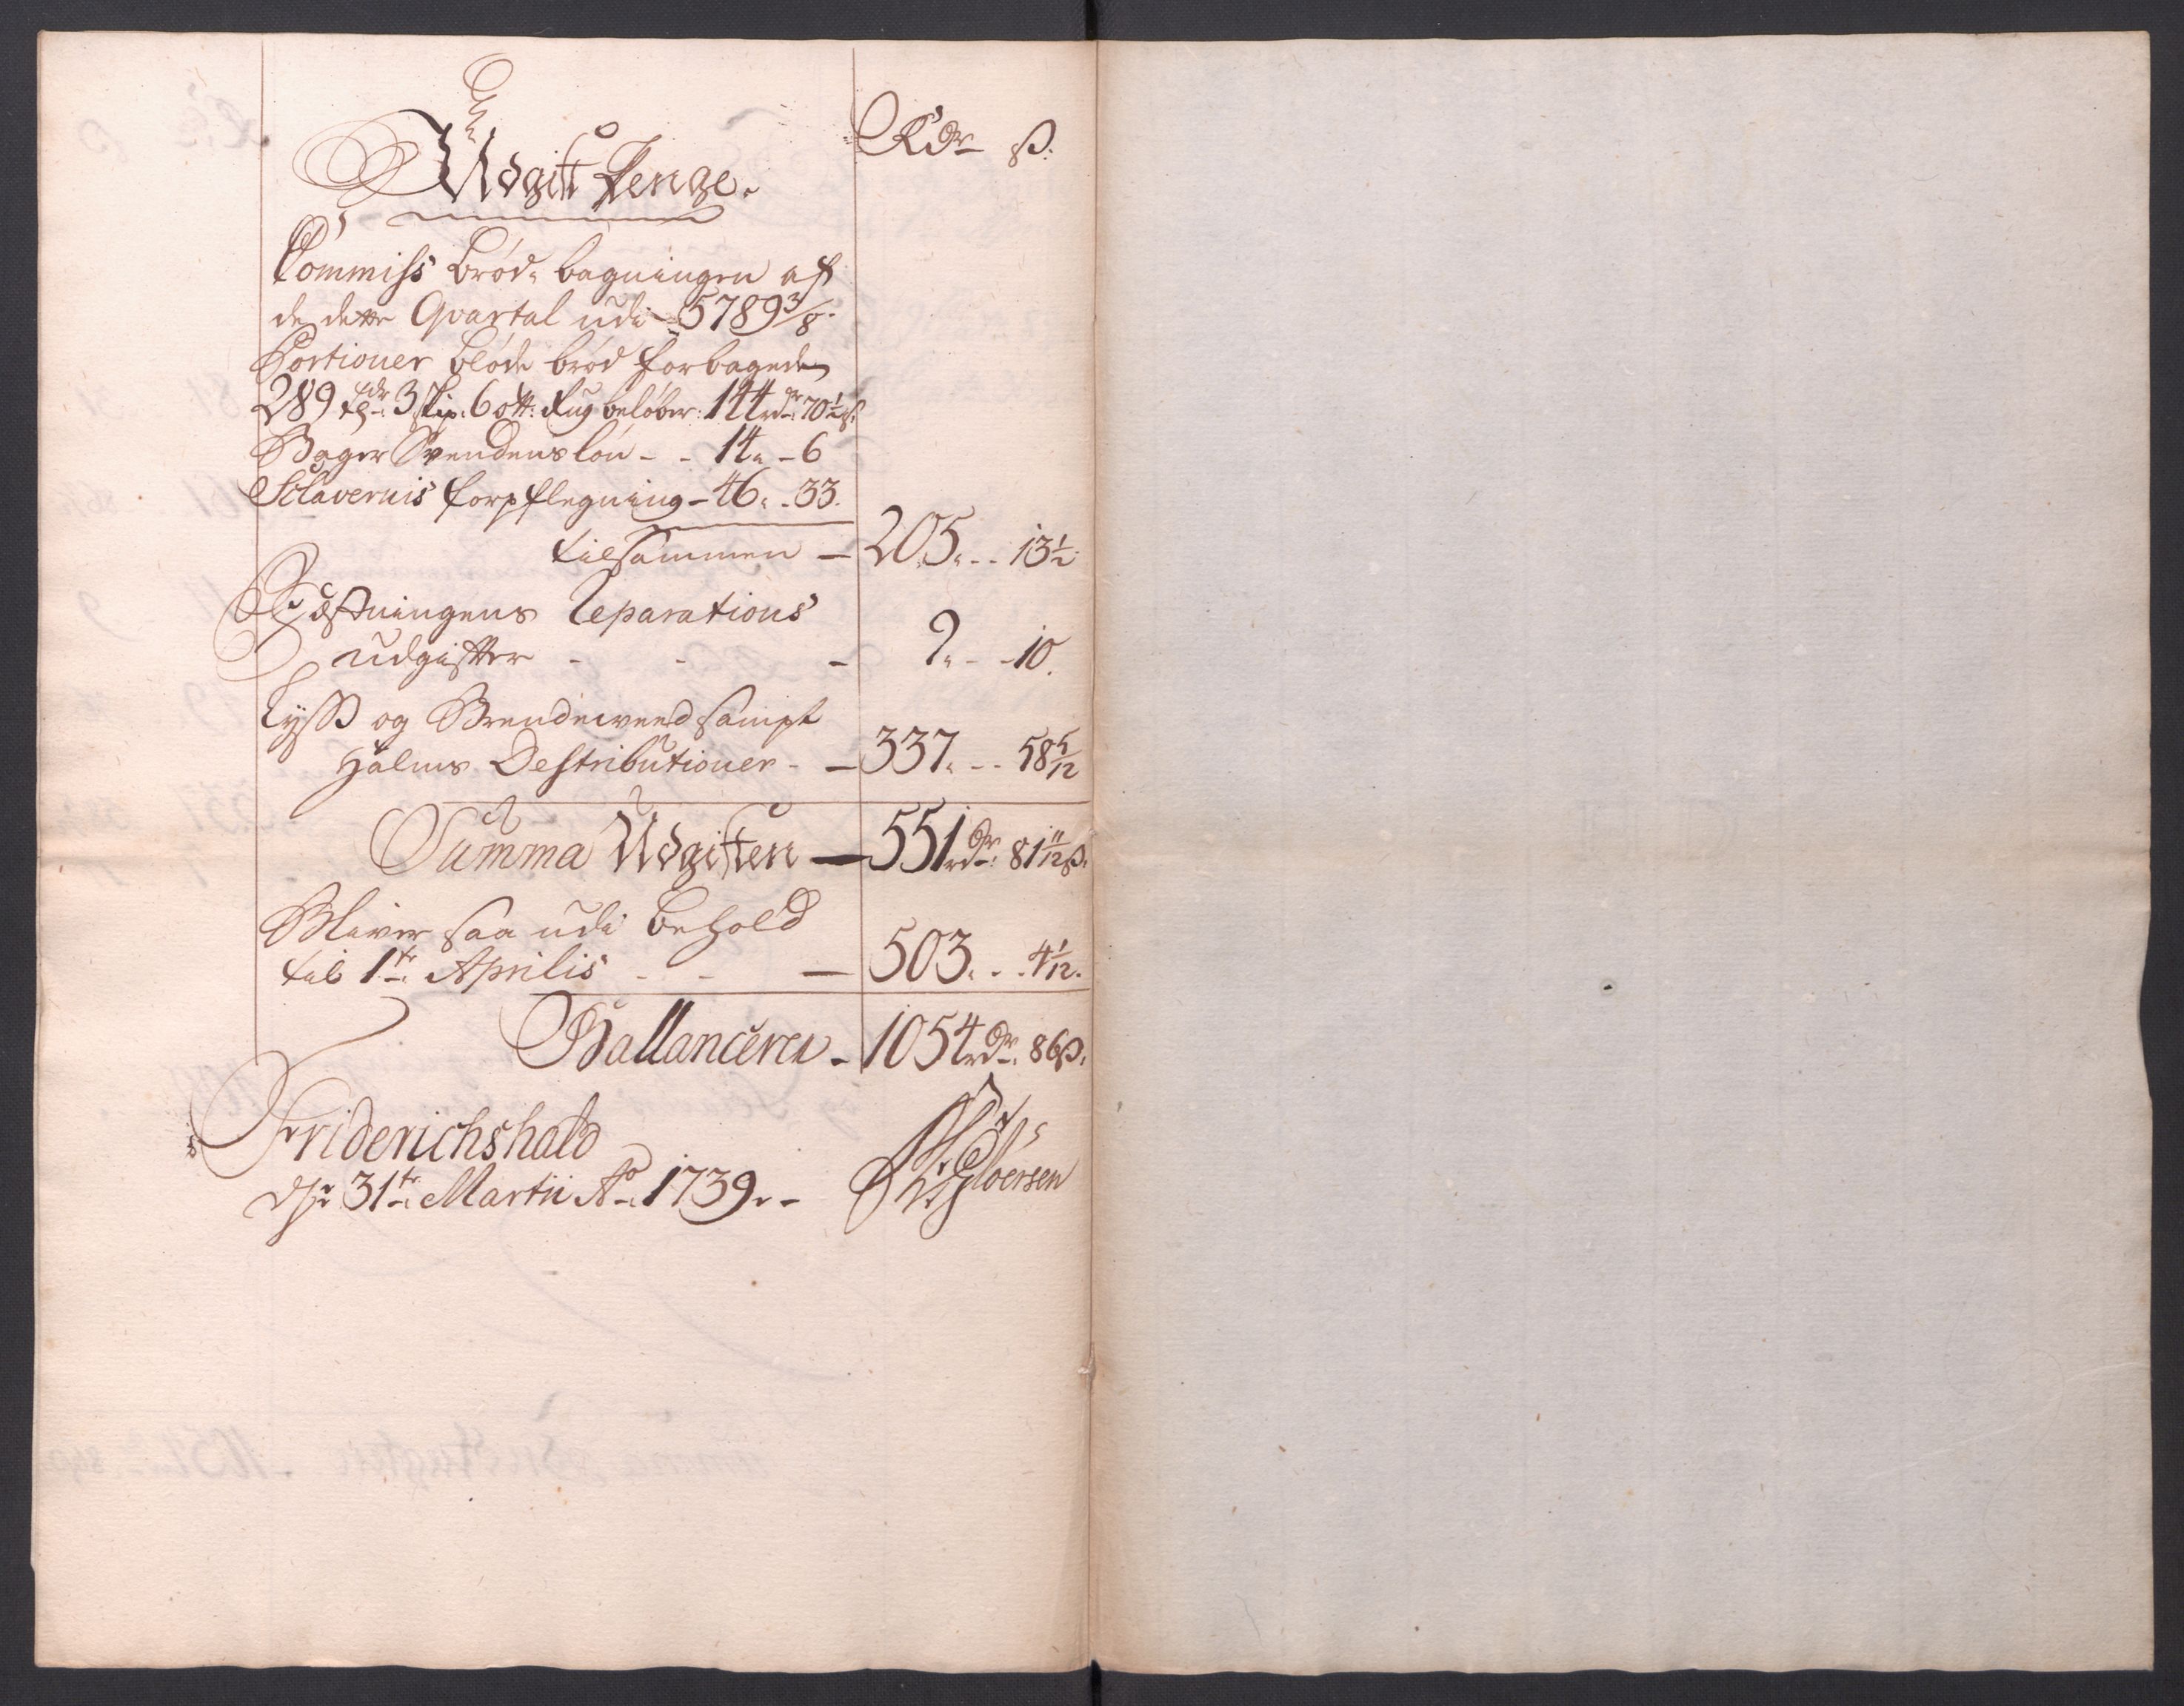 Udgift Penge.
Rdr ß.
Commiss brød. bagningen af
de dette Qvartal udi 5789 3/8.
Portioner bløde brød forbagede
289 tdr 3 skp: 6 ott: Rug beløber: 144 rdr 70 1/2 ß.
Bager Svendens løn - - 14 . - 6
Sclaveriis forpflegning - 46 . - 33.
tilsammen - 205. - - 13 1/2.
Fæstningens Reparations
udgifter - - - 9. - - 10.
Lyss og Brendeveed sampt
Halms Destributioner - - 337. - - 58 5/12
Summa Udgiften - 551 rdr: 81 11/12 ß.
Bliver saa udi behold
til 1te Aprilis - - - 503. - - 4 1/12.
Ballancerer - 1054 rdr. 86 ß.
Friderichshald
dn 31te Martii Ao 1739. -